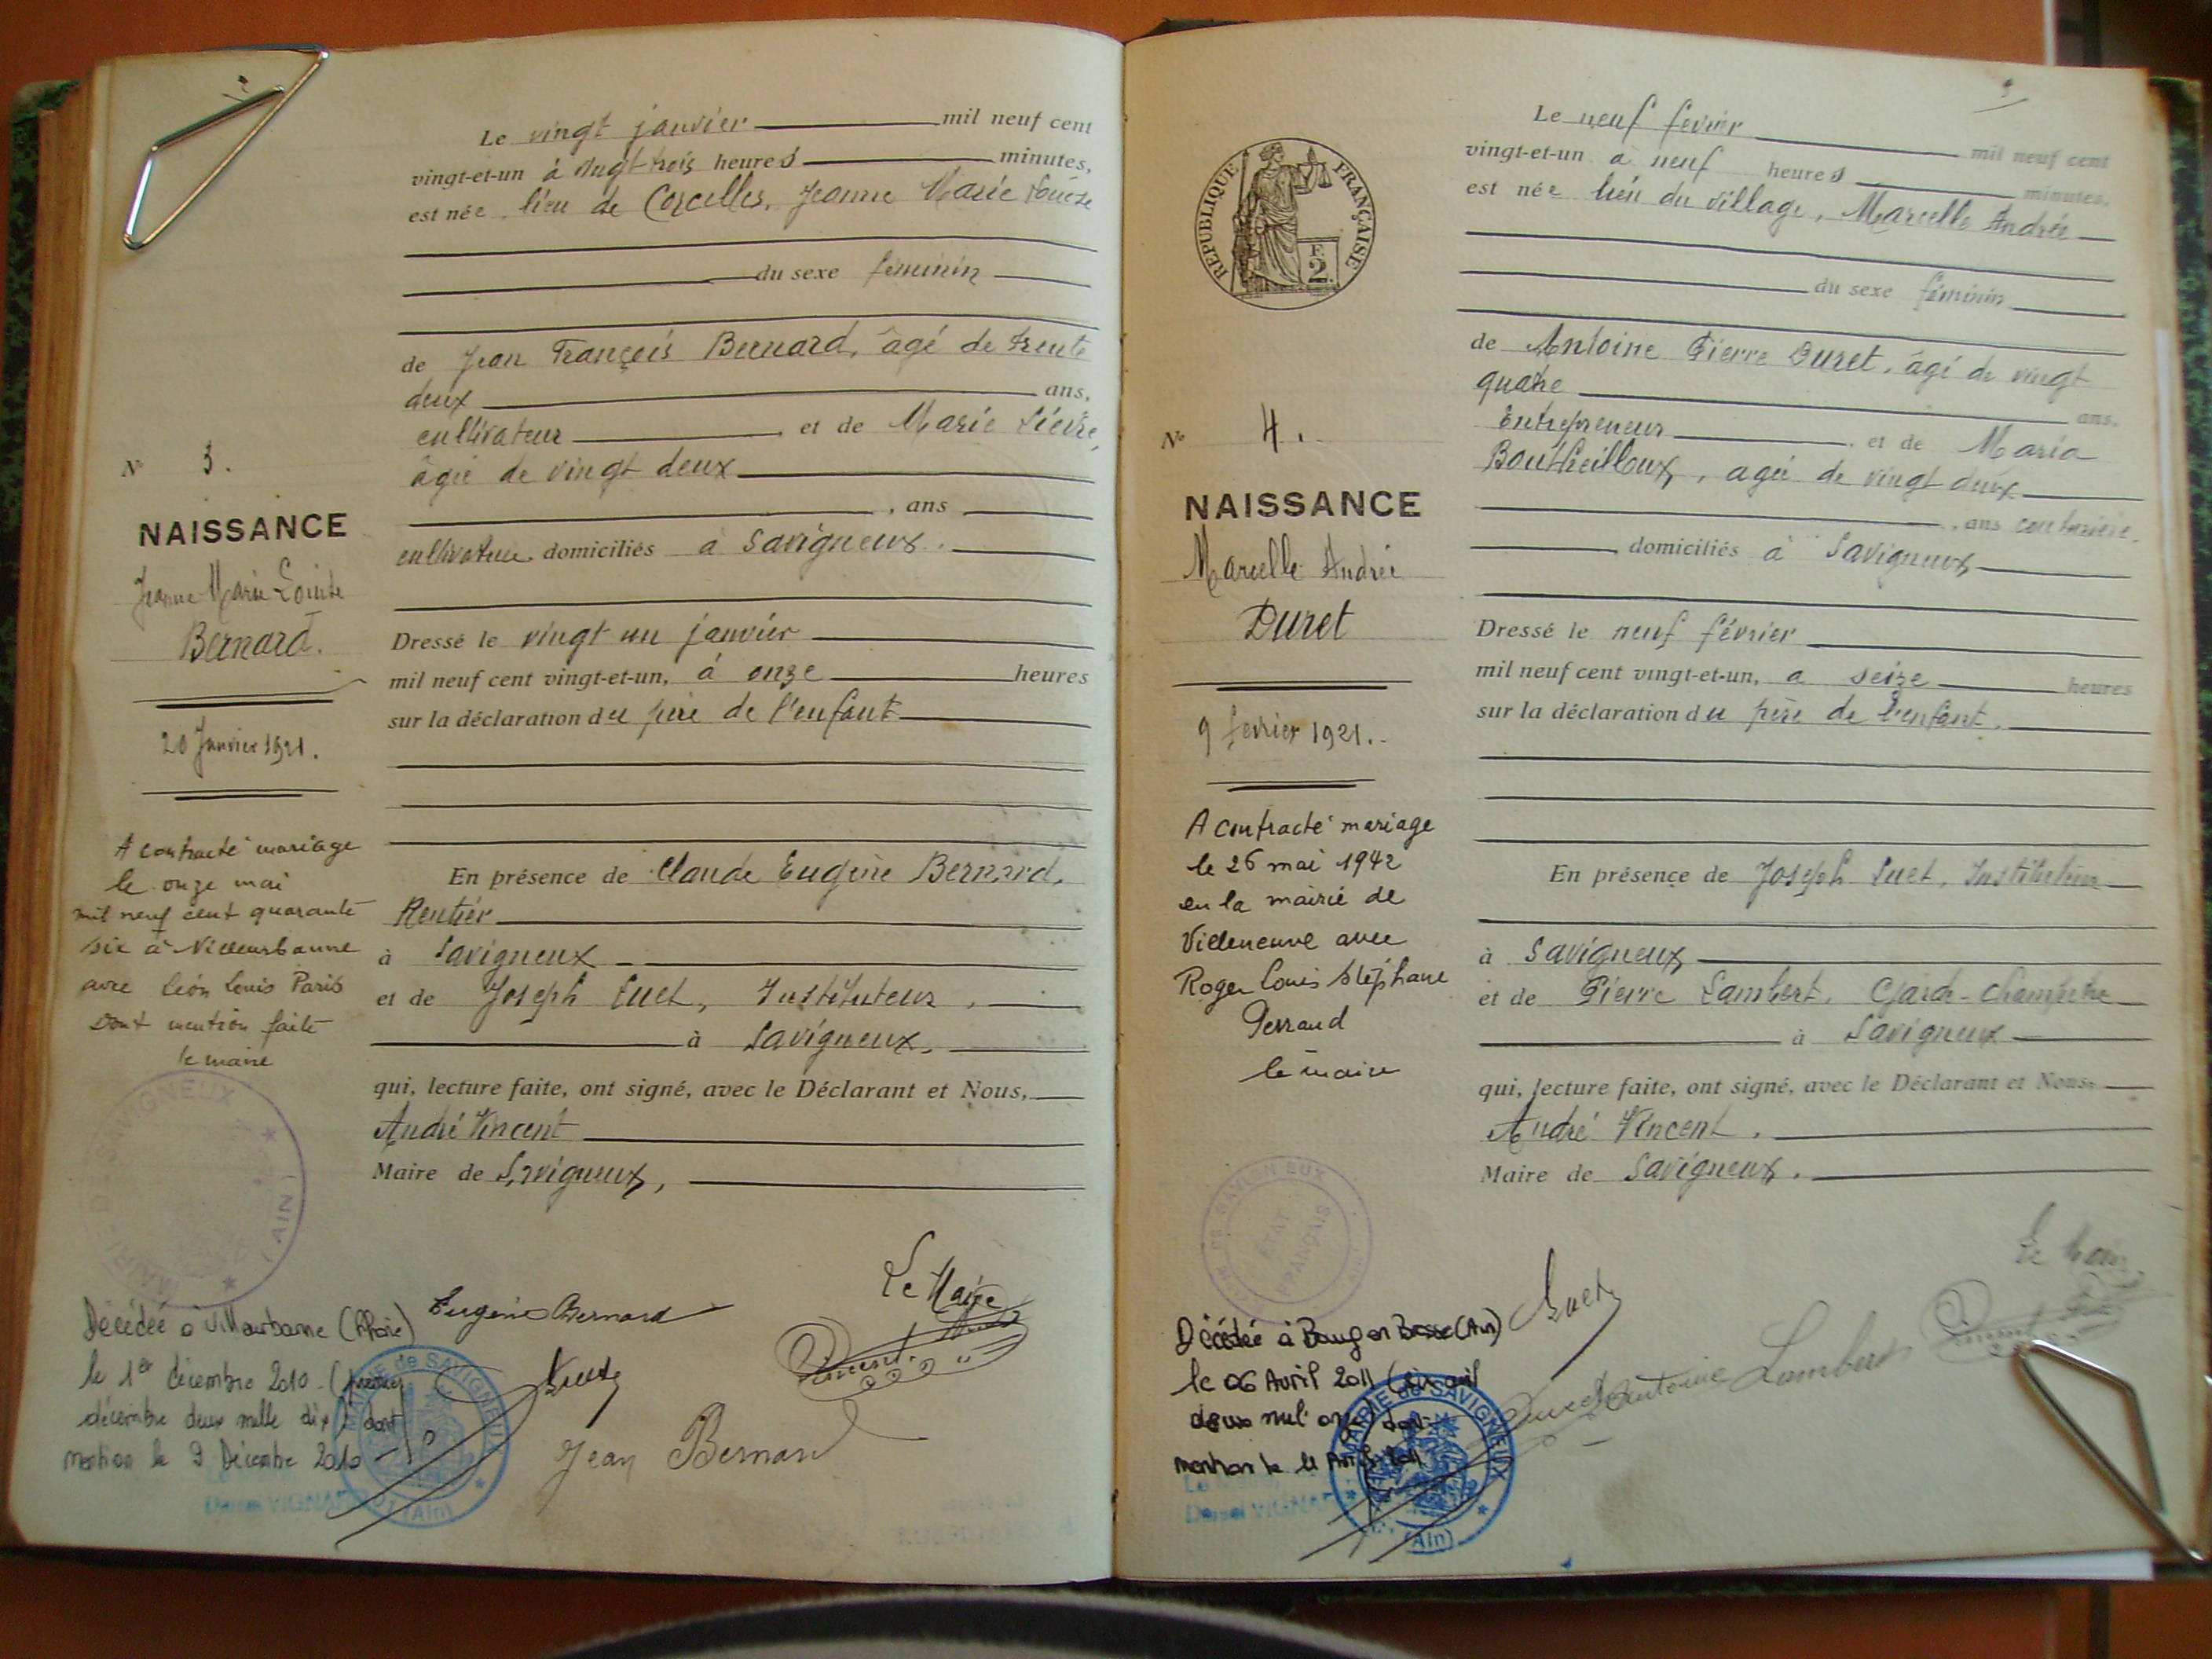 Le vingt janvier mil neuf cent
vingt-et-un à vingt trois heures minutes,
est née, lieu de Corcelles, Jeanne Marie Louise
du sexe féminin
de Jean François Bernard, âgé de trente
deux ans,
cultivateur et de Marie Lièvre,
âgée de vingt deux
, ans
domiciliés à Savigneux.
Dressé le vingt un janvier
mil neuf cent vingt-et-un, à onze heures
sur la déclaration du père de l'enfant
En présence de Claude Eugène Bernard,
Rentier
à Savigneux
et de Joseph Suet, Instituteur,
à Savigneux,
qui, lecture faite, ont signé, avec le Déclarant et Nous,
André Vincent
Maire de Savigneux,
N° 3.
NAISSANCE
Jeanne Marie Louise
Bernard.
20 Janvier 1921.
A contracté mariage
le onze mai
mil neuf cent quarante
six à Villeurbanne
avec Léon Louis Paris
Dont mention faite
le maire
MAIRIE DE SAVIGNEUX
(AIN)
Décédée à Villeurbanne (Rhône)
le 1er décembre 2010 (premier
décembre deux mille dix) dont
mention le 9 Décembre 2010
MAIRIE de SAVIGNEUX
(Ain)
Eugène Bernard
Le Maire
Suet
Vincent
Jean Bernard
Le neuf février mil neuf cent
vingt-et-un à neuf heures minutes,
est née lieu du village, Marcelle Andrée
du sexe féminin
de Antoine Pierre Duret, âgé de vingt
quatre ans,
Entrepreneur et de Maria
âgée de vingt deux
, ans couturière
domiciliés à Savigneux
Dressé le neuf février
mil neuf cent vingt-et-un, à seize heures
sur la déclaration du père de l'enfant.
En présence de Joseph Suet, Instituteur
à Savigneux
et de Pierre Lambert, Garde-Champêtre
à Savigneux
qui, lecture faite, ont signé, avec le Déclarant et Nous,
André Vincent.
Maire de Savigneux.
RÉPUBLIQUE FRANÇAISE
F.
2.
N° 4.
NAISSANCE
Marcelle Andrée
Duret
9 février 1921.
A contracté mariage
le 26 mai 1942
en la mairie de
Villeneuve avec
Roger Louis Stéphane
Perraud
le maire
SAVIGNEUX
ETAT
FRANÇAIS
Décédée à Bourg en Bresse (Ain)
le 06 Avril 2011 (six avril
deux mil onze) dont
mention le
MAIRIE de SAVIGNEUX
(Ain)
Suet
Duret Antoine
Lambert
Le Maire